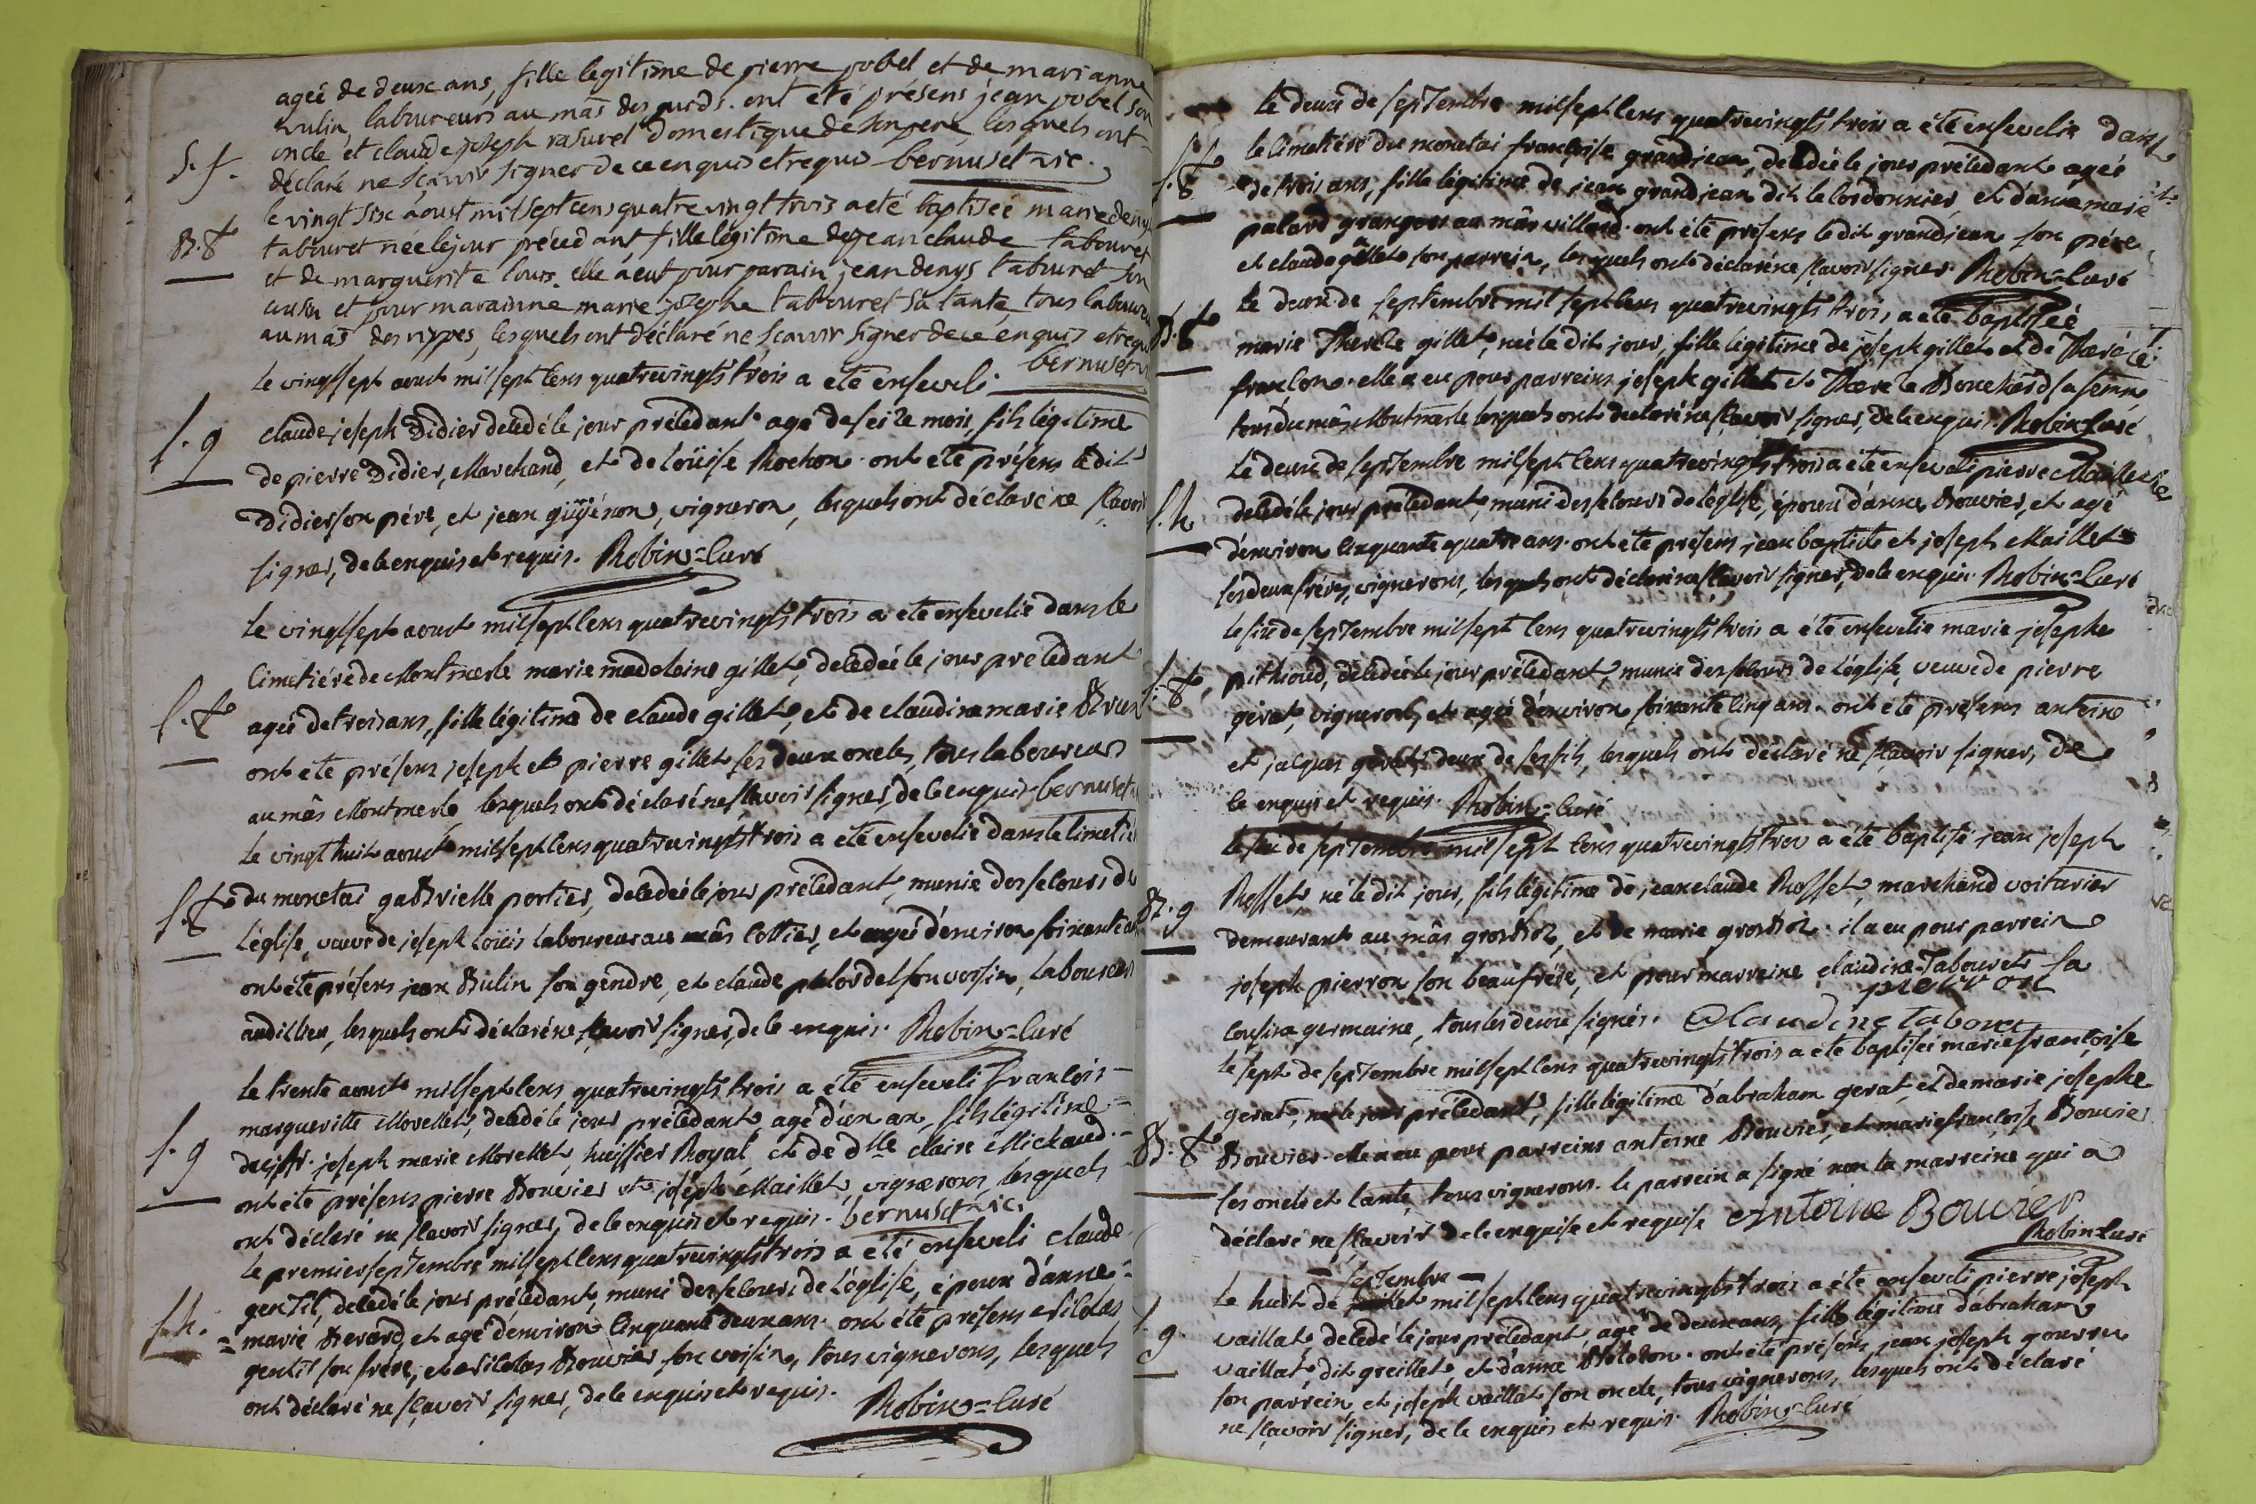 ageé de deux ans, fille legitime de pierre pobel et de marianne
vulin, laboureurs au mas des gueds. ont été présens jean pobel son
oncle et claude joseph rasurel domestique de son pere, lesquels ont
S. f.
déclaré ne sçavoir signer de ce enquis et requis bernuset vic.
le vingt six aoust mil sept cens quatre vingt trois a eté baptisée marie denys
B. f.
tabouret née le jour précedant fille legitime de jean claude tabouret
et de marguerite louis. elle a eut pour parain jean denys tabouret son
cousin et pour marainne marie josephe tabouret sa tante tous laboureurs
au mas des rippes, lesquels ont déclaré ne scavoir signer de ce enquis et requis
bernuset
le vingt sept aout mil sept cens quatre vingts trois a eté enseveli
S. g
claude joseph Didier decedé le jour précédant agé de seize mois, fils légitime
de pierre Didier, Marchand, et de Loüise Rochon. ont eté présens le dit
Didier son père, et jean guÿénon, vigneron, lesquels ont déclaré ne sçavoir
signer, de ce enquis et requis. Robin = Curé
le vingt sept aout mil sept cens quatre vingts trois a eté ensevelie dans le
Cimetière de Montmerle marie madeleine gillet, decedée le jour précédant
S. f
ageé de trois ans, fille légitime de claude gillet, et de claudine marie Brun
ont eté présens joseph et pierre gillet ses deux oncles, tous laboureurs
au mâs Montmerle lesquels ont déclaré ne sçavoir signer, de ce enquis bernuset
le vingt huit aout mil sept cens quatre vingts trois a eté ensevelie dans le Cimetière
S. f
du monetai gabrielle portier, decedée le jour précédant, munie des secours de
l'église, veuve de joseph Loüis laboureur au mâs Cottier, et ageé d'environ soixante ans
ont été présens jean Bulin son gendre, et claude son voisin, laboureurs
audit lieu, lesquels ont déclaré ne sçavoir signer, de ce enquis. Robin = Curé
le trente aout mil sept cens quatre vingts trois a été enseveli François
margueritte Morellet, decedé le jour précédant, agé d'un an, fils légitime
S. g
du sr. joseph marie Morellet, huissier Royal et de dlle claire Michaud.
ont été présens pierre Bouvier et joseph Maillet, vignerons, lesquels
ont déclaré ne sçavoir signer, de ce enquis et requis. bernuset vic.
le premier septembre mil sept cens quatre vingts trois a été enseveli claude
gentil, decedé le jour précédant, muni des secours de l'église, époux d'anne
S. h.
marie Berard, et agé d'environ Cinquante deux ans. ont été présens Nicolas
gentil son frère, et Nicolas Bouvier son voisin, tous vignerons, lesquels
ont déclaré ne sçavoir signer, de ce enquis et requis.
Robin = Curé
le deux de septembre mil sept cens quatre vingts trois a été ensevelie dans
S. f
le Cimetière du monetai françoise grandjean, decedée le jour précédant ageé
de trois ans, fille légitime de jean grandjean dit le Cordonnier, et d'anne marie
palard grangers au mâs villard. ont été présens le dit grandjean son père
et claude gillet son parrein, lesquels ont déclaré ne sçavoir signer. Robin = Curé
le deux de septembre mil sept cens quatre vingts trois a eté baptisée
B. f
marie Therèze gillet, née le dit jour, fille légitime de joseph gillet et de Therèze
françon. elle a eu pour parreins joseph gillet et Thereze Bouchard sa femme
tous du mâs Montmerle lesquels ont déclaré ne sçavoir signer, de ce enquis. Robin Curé
le deux de septembre mil sept cens quatre vingts trois a été enseveli pierre Maillet
S. h
decedé le jour précédant, muni des secours de l'église, époux d'anne Bouvier, et agé
d'environ Cinquante quatre ans. ont eté présens jean baptiste et joseph Maillet
ses deux frères, vignerons, lesquels ont déclaré ne sçavoir signer, de ce enquis. Robin = Curé
le six de septembre mil sept cens quatre vingts trois a été ensevelie marie josephe
S. f.
pithioud, decedée le jour précédant, munie des secours de l'église, veuve de pierre
gérat, vigneron, et ageé d'environ soixante Cinq ans. ont eté présens antoine
et jacques gerat, deux de ses fils, lesquels ont déclaré ne sçavoir signer, de
ce enquis et requis. Robin = Curé
le six de septembre mil sept cens quatre vingts trois a été baptisé jean joseph
B. g
Rosset, né le dit jour, fils légitime de jean claude Rosset, marchand voiturier
demeurant au mâs grosbos, et de marie grosbos. il a eu pour parrein
joseph pierron son beaufrère, et pour marreine claudine Tabouret sa
Cousine germaine, tous les deux signés. pierron
Claudine tabouret
le sept de septembre mil sept cens quatre vingts trois a eté baptisée marie françoise
gerat, née le jour précédant, fille légitime d'abraham gerat, et de marie josephe
B. f
Bouvier. elle a eu pour parreins antoine Bouvier, et marie françoise Bouvier
ses oncle et tante, tous vignerons. le parrein a signé non la marreine qui a
déclaré ne sçavoir de ce enquise et requise Antoine Bouvier
Robin Curé
- septembre -
le huit de mil sept cens quatre vingts trois a été enseveli pierre joseph
S. g.
vaillat decedé le jour précédant agé de deux ans, fils légitime d'abraham
vaillat, dit greillet, et d'anne Bololon. ont été présens jean joseph gouvru
son parrein et joseph vaillat son oncle, tous vignerons, lesquels ont déclaré
ne sçavoir signer, de ce enquis et requis. Robin = Curé